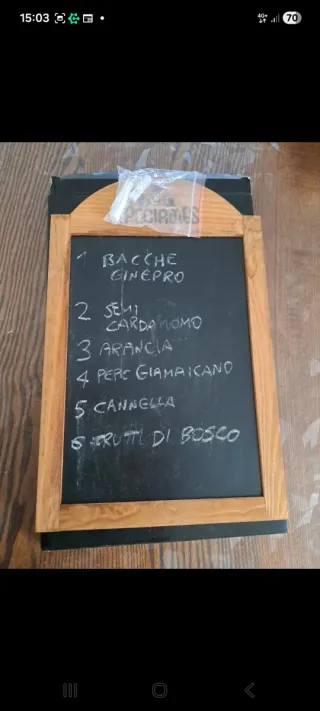 15:03
4G+
70
SPECIALITIES
1 BACCHE
GINEPRO
2 SEMI
CARDAMOMO
3 ARANCIA
4 PEPE GIAMAICANO
5 CANNELLA
6 FRUTTI DI BOSCO